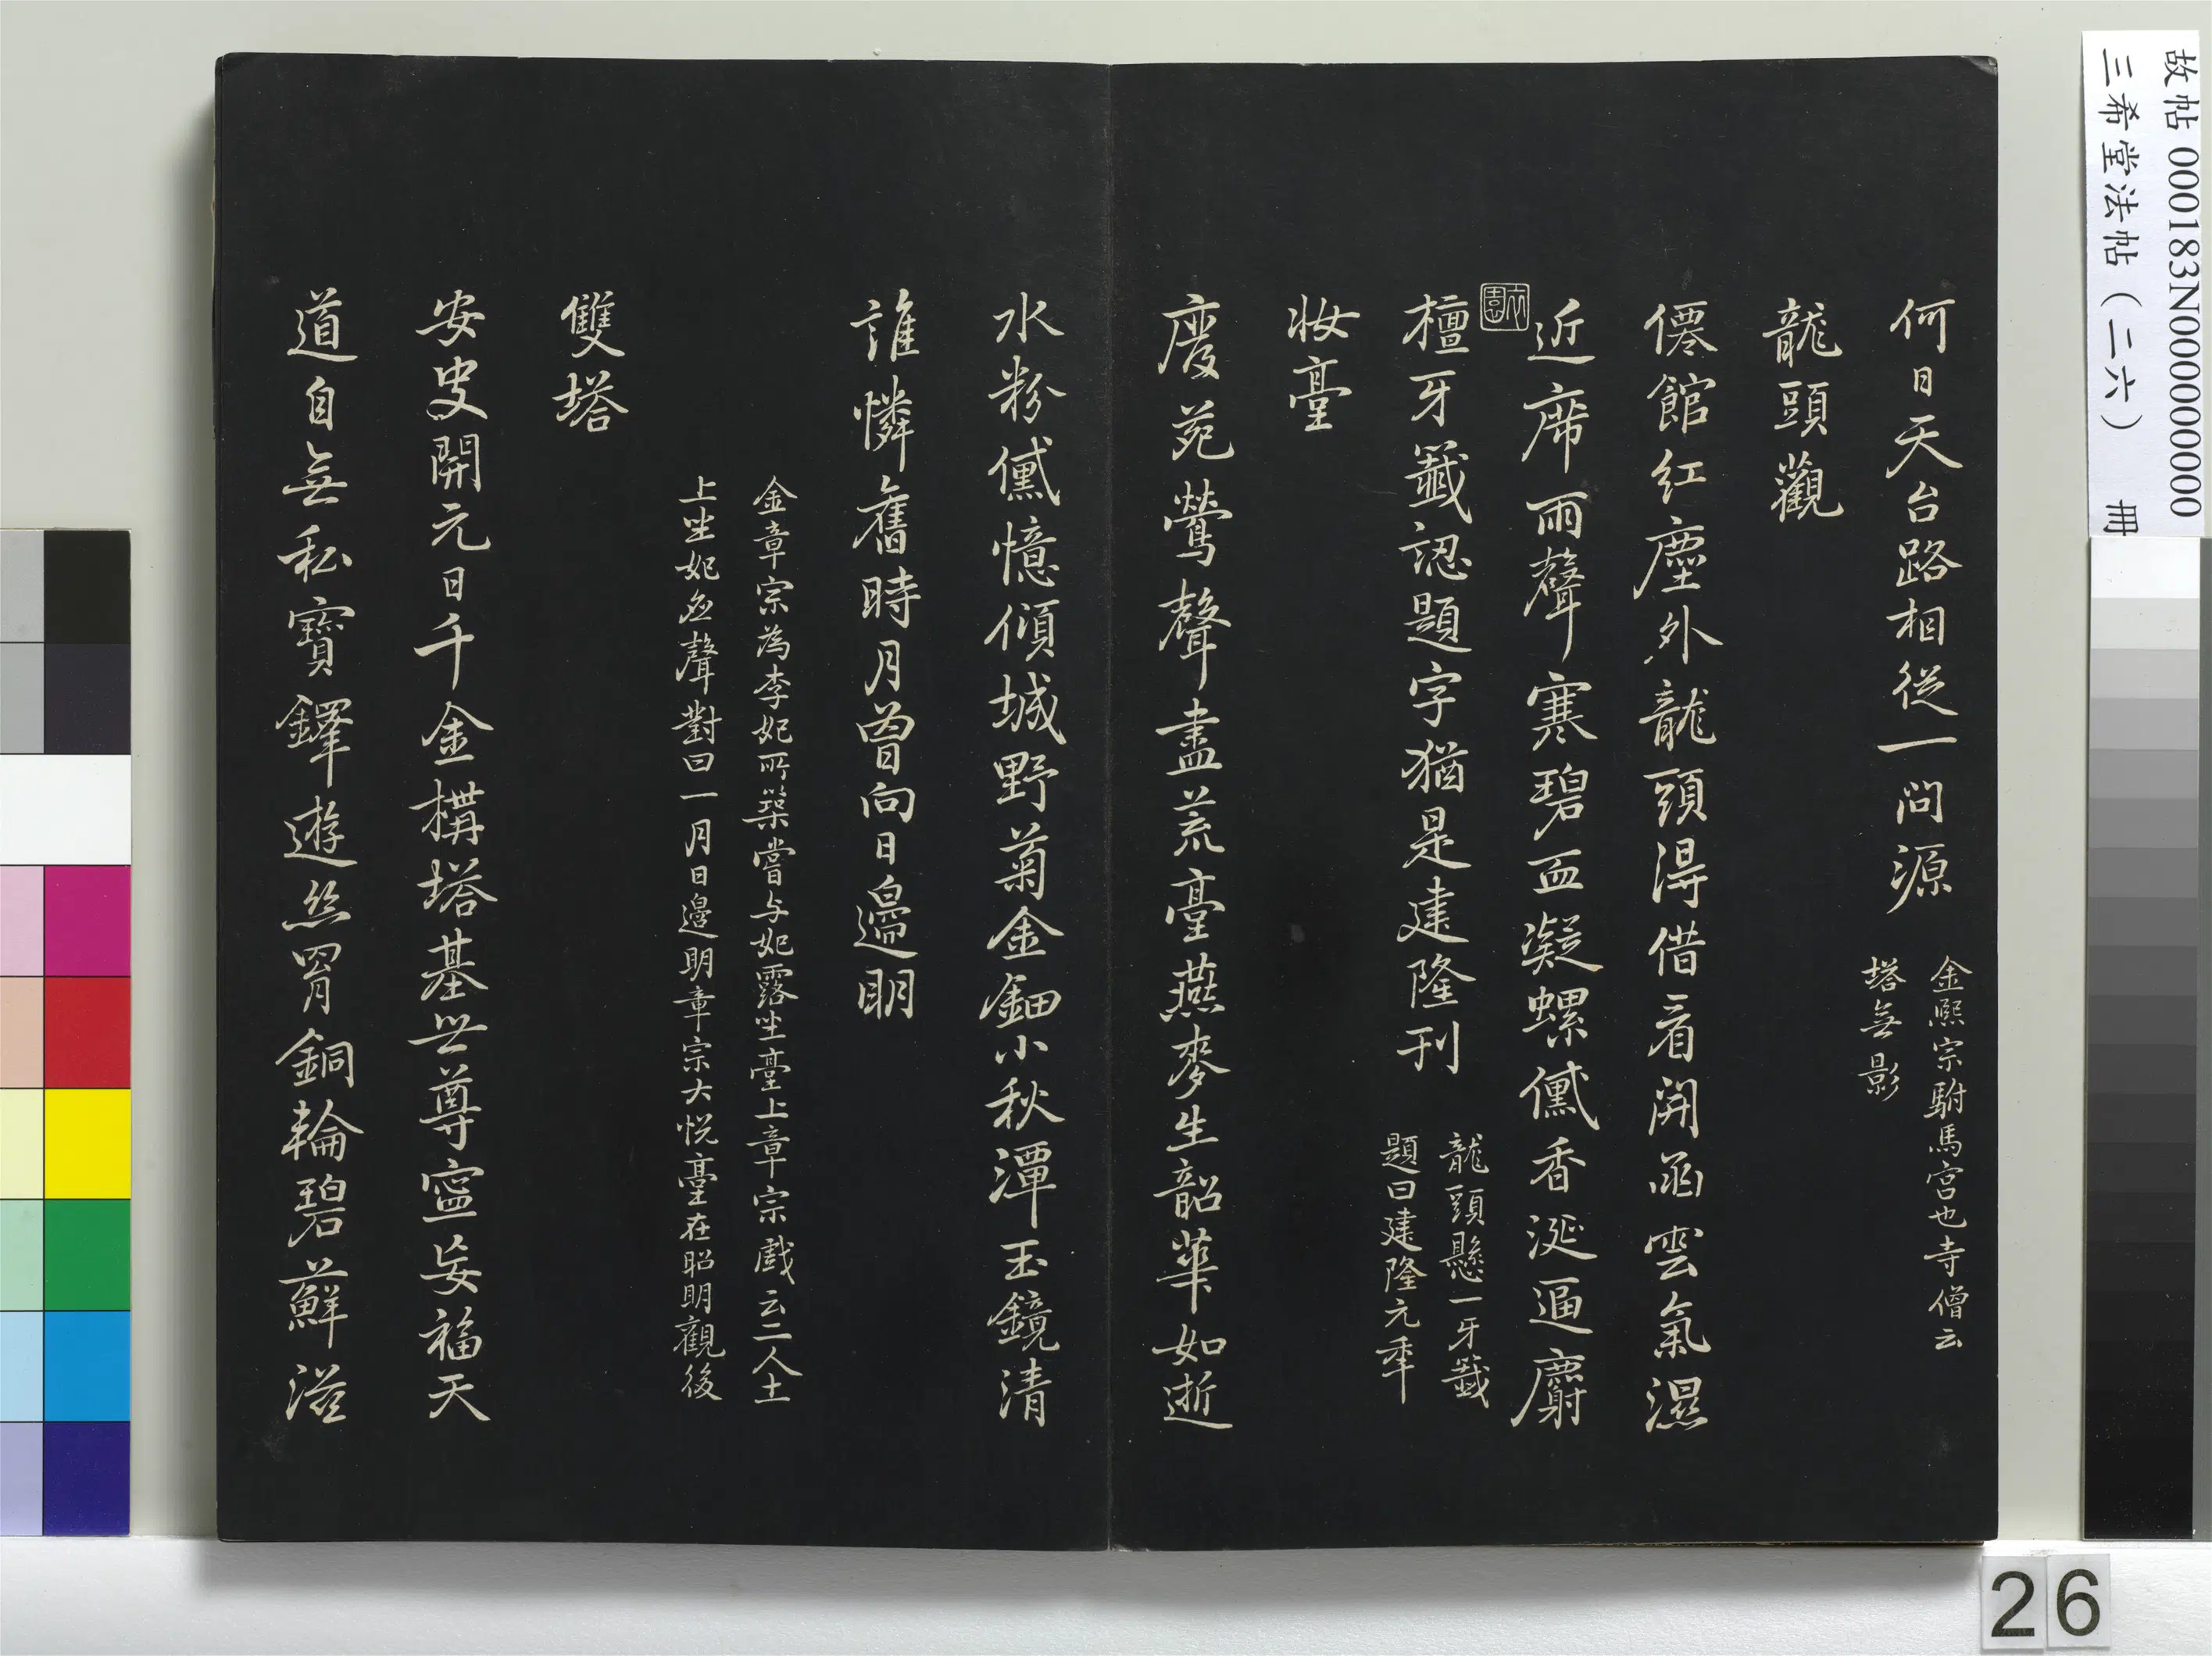 何日天台路相從一問源
金熙宗駙馬宮也寺僧云
塔無影
龍頭觀
僊館紅塵外龍頭得借看開函雲氣濕
近席雨聲寒碧血凝螺儻香涎逼麝
檀牙籤認題字猶是建隆刊
龍頭懸一牙籤
題曰建隆元年
妝臺
廢苑鶯聲盡荒臺燕麥生韶華如逝
水粉儻憶傾城野菊金鈿小秋潭玉鏡清
誰憐舊時月曾向日邊明
金章宗為李妃所築嘗与妃露坐臺上章宗戲云二人土
上坐妃應聲對曰一月日邊明章宗大悅臺在昭明觀後
雙塔
安史開元日千金構塔基世尊寧妄福天
道自無私寶鐸遊絲罥銅輪碧蘚滋
故帖 000183N000000000
三希堂法帖（二六） 冊
26